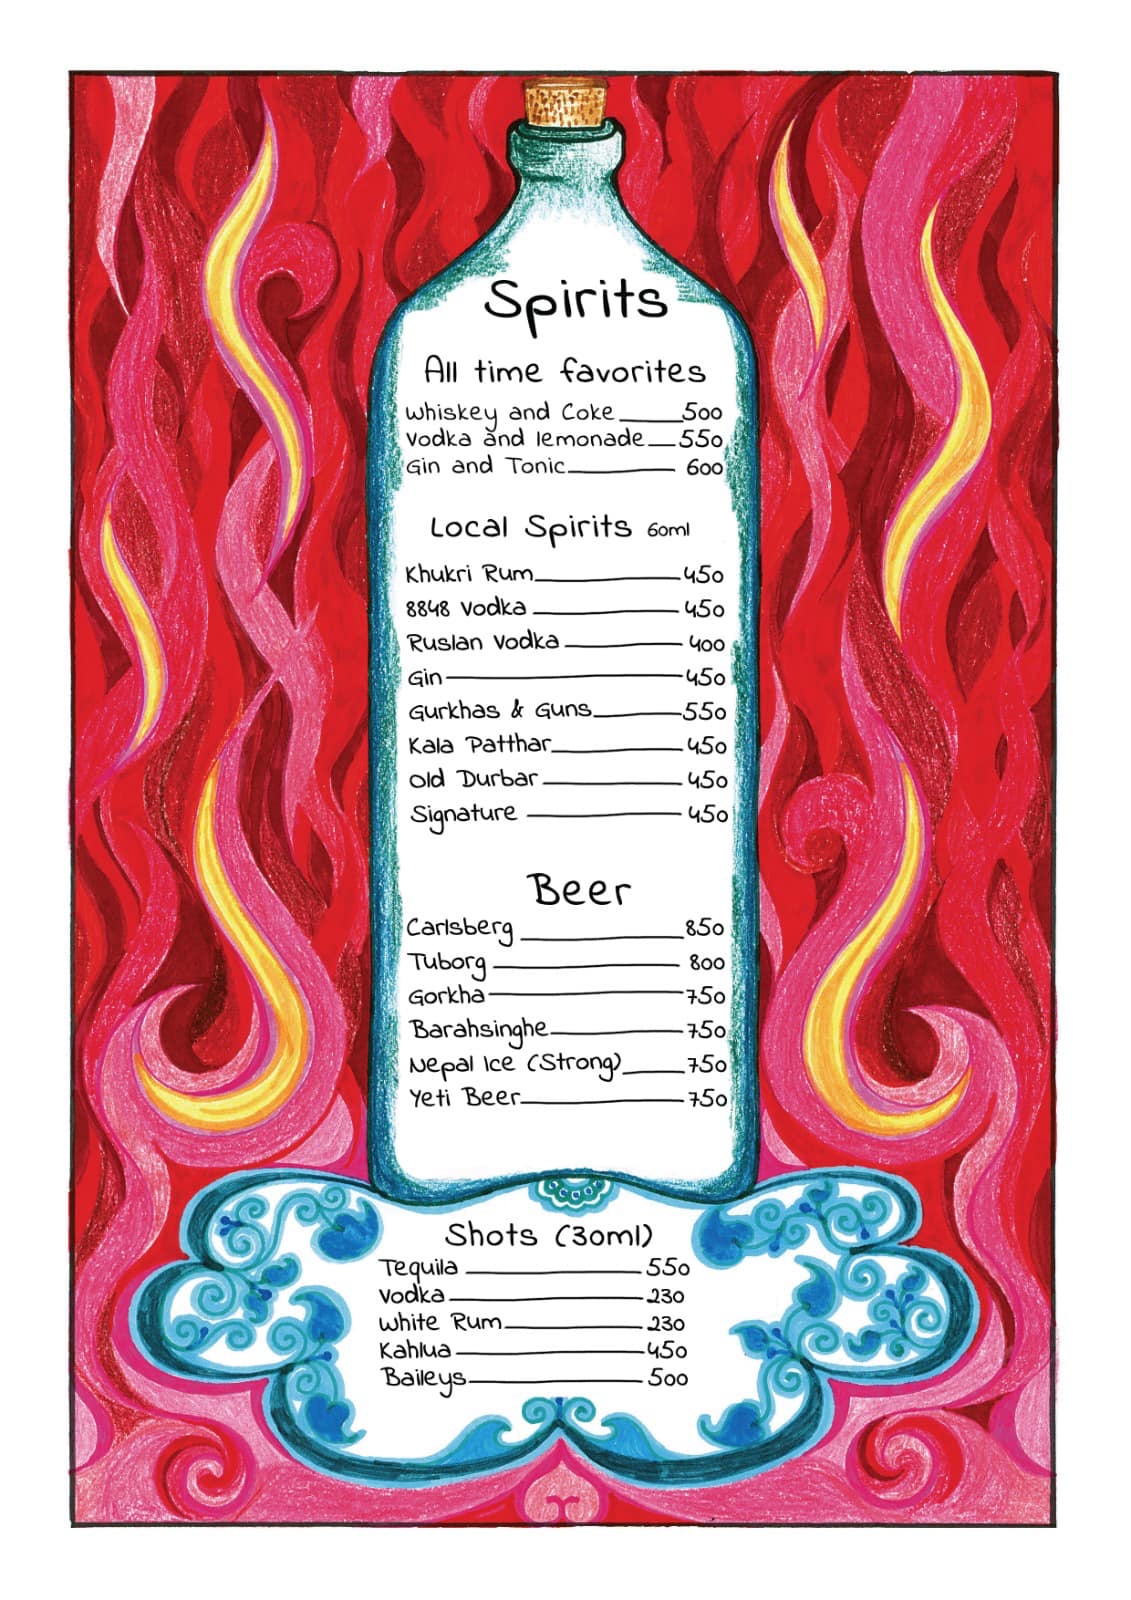 Spirits
All time favorites
Whiskey and Coke 500
Vodka and lemonade 550
Gin and Tonic 600
Local Spirits 60ml
Khukri Rum 450
8848 Vodka 450
Ruslan Vodka 400
Gin 450
Gurkhas & Guns 550
Kala Patthar 450
Old Durbar 450
Signature 450
Beer
Carlsberg 850
Tuborg 800
Gorkha 750
Barahsinghe 750
Nepal Ice (Strong) 750
Yeti Beer 750
Shots (30ml)
Tequila 550
Vodka 230
White Rum 230
Kahlua 450
Baileys 500